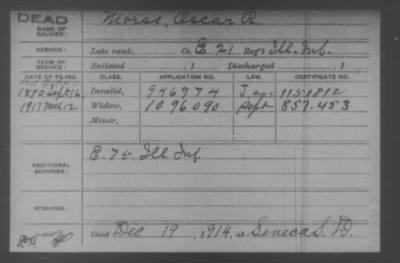 DEAD
NAME OF SOLDIER: Morse, Oscar R.
SERVICE: Late rank, Co. E 21 Reg't Ill. Inf.
TERM OF SERVICE: Enlisted , 1 Discharged , 1
DATE OF FILING. CLASS. APPLICATION NO. LAW. CERTIFICATE NO.
1890 Sept 16 Invalid, 946974 1151812
1917 Mch 12 Widow, 1096090 Sept 857.453
Minor,
ADDITIONAL SERVICES: E. 75 Ill. Inf.
REMARKS:
Died Dec 19, 1914, at Seneca S. D.